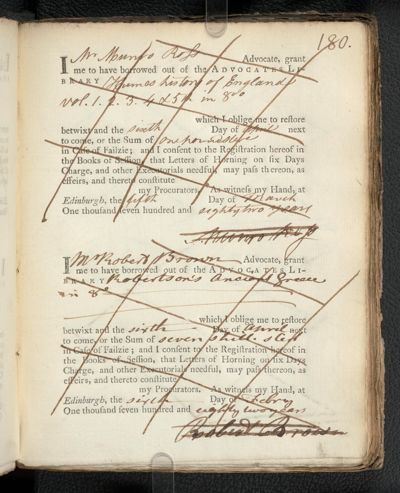 180.
I Mr Munro Ross Advocate, grant
me to have borrowed out of the ADVOCATES LI-
BRARY Humes history of England
vol. 1. 2. 3. 4 & 5th in 8vo
which I oblige me to restore
betwixt and the sixth Day of April next
to come, or the Sum of one pound ster
in Case of Failzie; and I consent to the Registration hereof in
the Books of Session, that Letters of Horning on six Days
Charge, and other Executorials needful, may pass thereon, as
effeirs, and thereto constitute
my Procurators. As witness my Hand, at
Edinburgh, the fifth Day of March
One thousand seven hundred and eighty two years
Munro Ross
I Mr Robert Brown Advocate, grant
me to have borrowed out of the ADVOCATES LI-
BRARY Robertson's Ancient Greece
in 8vo
which I oblige me to restore
betwixt and the sixth Day of April next
to come, or the Sum of seven shill: ster
in Case of Failzie; and I consent to the Registration hereof in
the Books of Session, that Letters of Horning on six Days
Charge, and other Executorials needful, may pass thereon, as
effeirs, and thereto constitute
my Procurators. As witness my Hand, at
Edinburgh, the sixth Day of Febry
One thousand seven hundred and eighty two years
Robert Brown